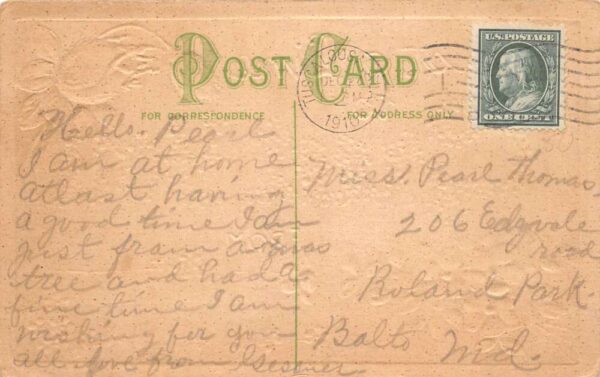 POST CARD
FOR CORRESPONDENCE
FOR ADDRESS ONLY
U.S. POSTAGE
ONE CENT
TUSCALOOSA
1910
Hello. Pearl
I am at home
atlast having
a good time I am
just from a xmas
tree and had a
fine time I am
wishing for you
all love from
Miss. Pearl Thomas.
206 Edgvale
road
Roland Park.
Balto Md.